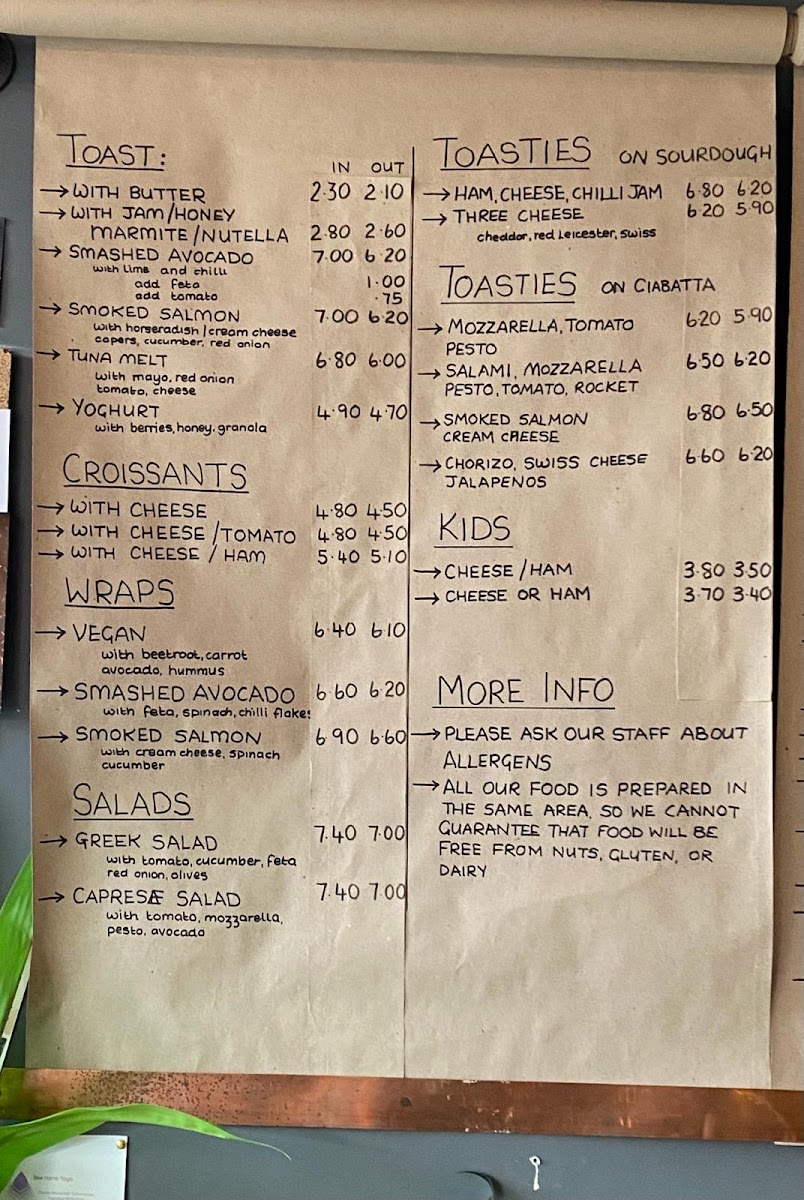 TOAST:
IN OUT
→ WITH BUTTER 2.30 2.10
→ WITH JAM/HONEY
MARMITE/NUTELLA 2.80 2.60
→ SMASHED AVOCADO 7.00 6.20
with lime and chilli
add feta 1.00
add tomato .75
→ SMOKED SALMON 7.00 6.20
with horseradish/cream cheese
capers, cucumber, red onion
→ TUNA MELT 6.80 6.00
with mayo, red onion
tomato, cheese
→ YOGHURT 4.90 4.70
with berries, honey, granola
CROISSANTS
→ WITH CHEESE 4.80 4.50
→ WITH CHEESE/TOMATO 4.80 4.50
→ WITH CHEESE/HAM 5.40 5.10
WRAPS
→ VEGAN 6.40 6.10
with beetroot, carrot
avocado, hummus
→ SMASHED AVOCADO 6.60 6.20
with feta, spinach, chilli flakes
→ SMOKED SALMON 6.90 6.60
with cream cheese, spinach
cucumber
SALADS
→ GREEK SALAD 7.40 7.00
with tomato, cucumber, feta
red onion, olives
→ CAPRESE SALAD 7.40 7.00
with tomato, mozzarella,
pesto, avocado
TOASTIES ON SOURDOUGH
→ HAM, CHEESE, CHILLI JAM 6.80 6.20
→ THREE CHEESE 6.20 5.90
cheddar, red leicester, swiss
TOASTIES ON CIABATTA
→ MOZZARELLA, TOMATO 6.20 5.90
PESTO
→ SALAMI, MOZZARELLA 6.50 6.20
PESTO, TOMATO, ROCKET
→ SMOKED SALMON 6.80 6.50
CREAM CHEESE
→ CHORIZO, SWISS CHEESE 6.60 6.20
JALAPENOS
KIDS
→ CHEESE/HAM 3.80 3.50
→ CHEESE OR HAM 3.70 3.40
MORE INFO
→ PLEASE ASK OUR STAFF ABOUT
ALLERGENS
→ ALL OUR FOOD IS PREPARED IN
THE SAME AREA, SO WE CANNOT
GUARANTEE THAT FOOD WILL BE
FREE FROM NUTS, GLUTEN, OR
DAIRY